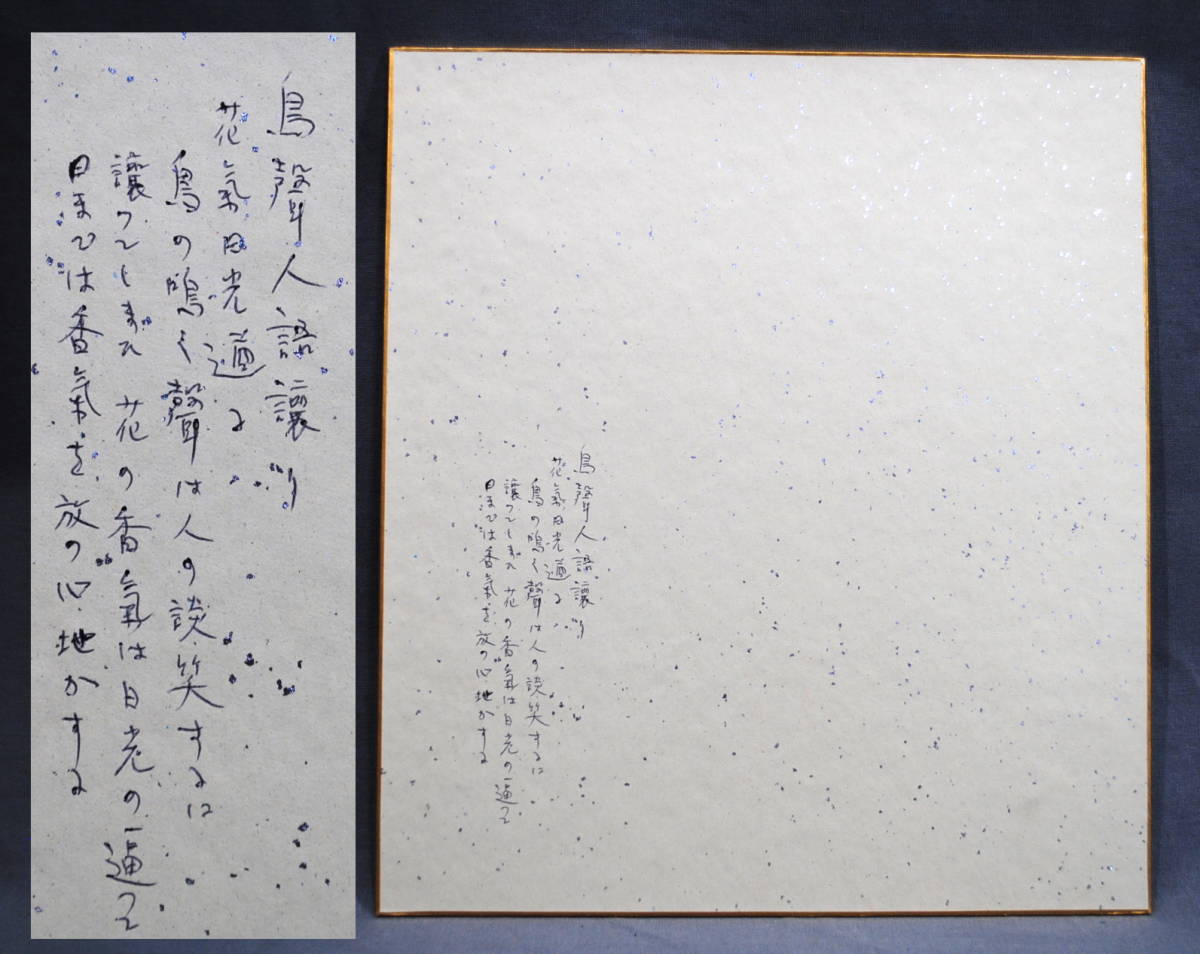 鳥聲人語讓り
花氣日光逼る
鳥の鳴く聲は人の談笑するに
讓つてしまひ 花の香氣は日光の逼る
日までは香氣を放つ心地かする
鳥聲人語讓り
花氣日光逼る
鳥の鳴く聲は人の談笑するに
讓つてしまひ 花の香氣は日光の逼る
日までは香氣を放つ心地かする